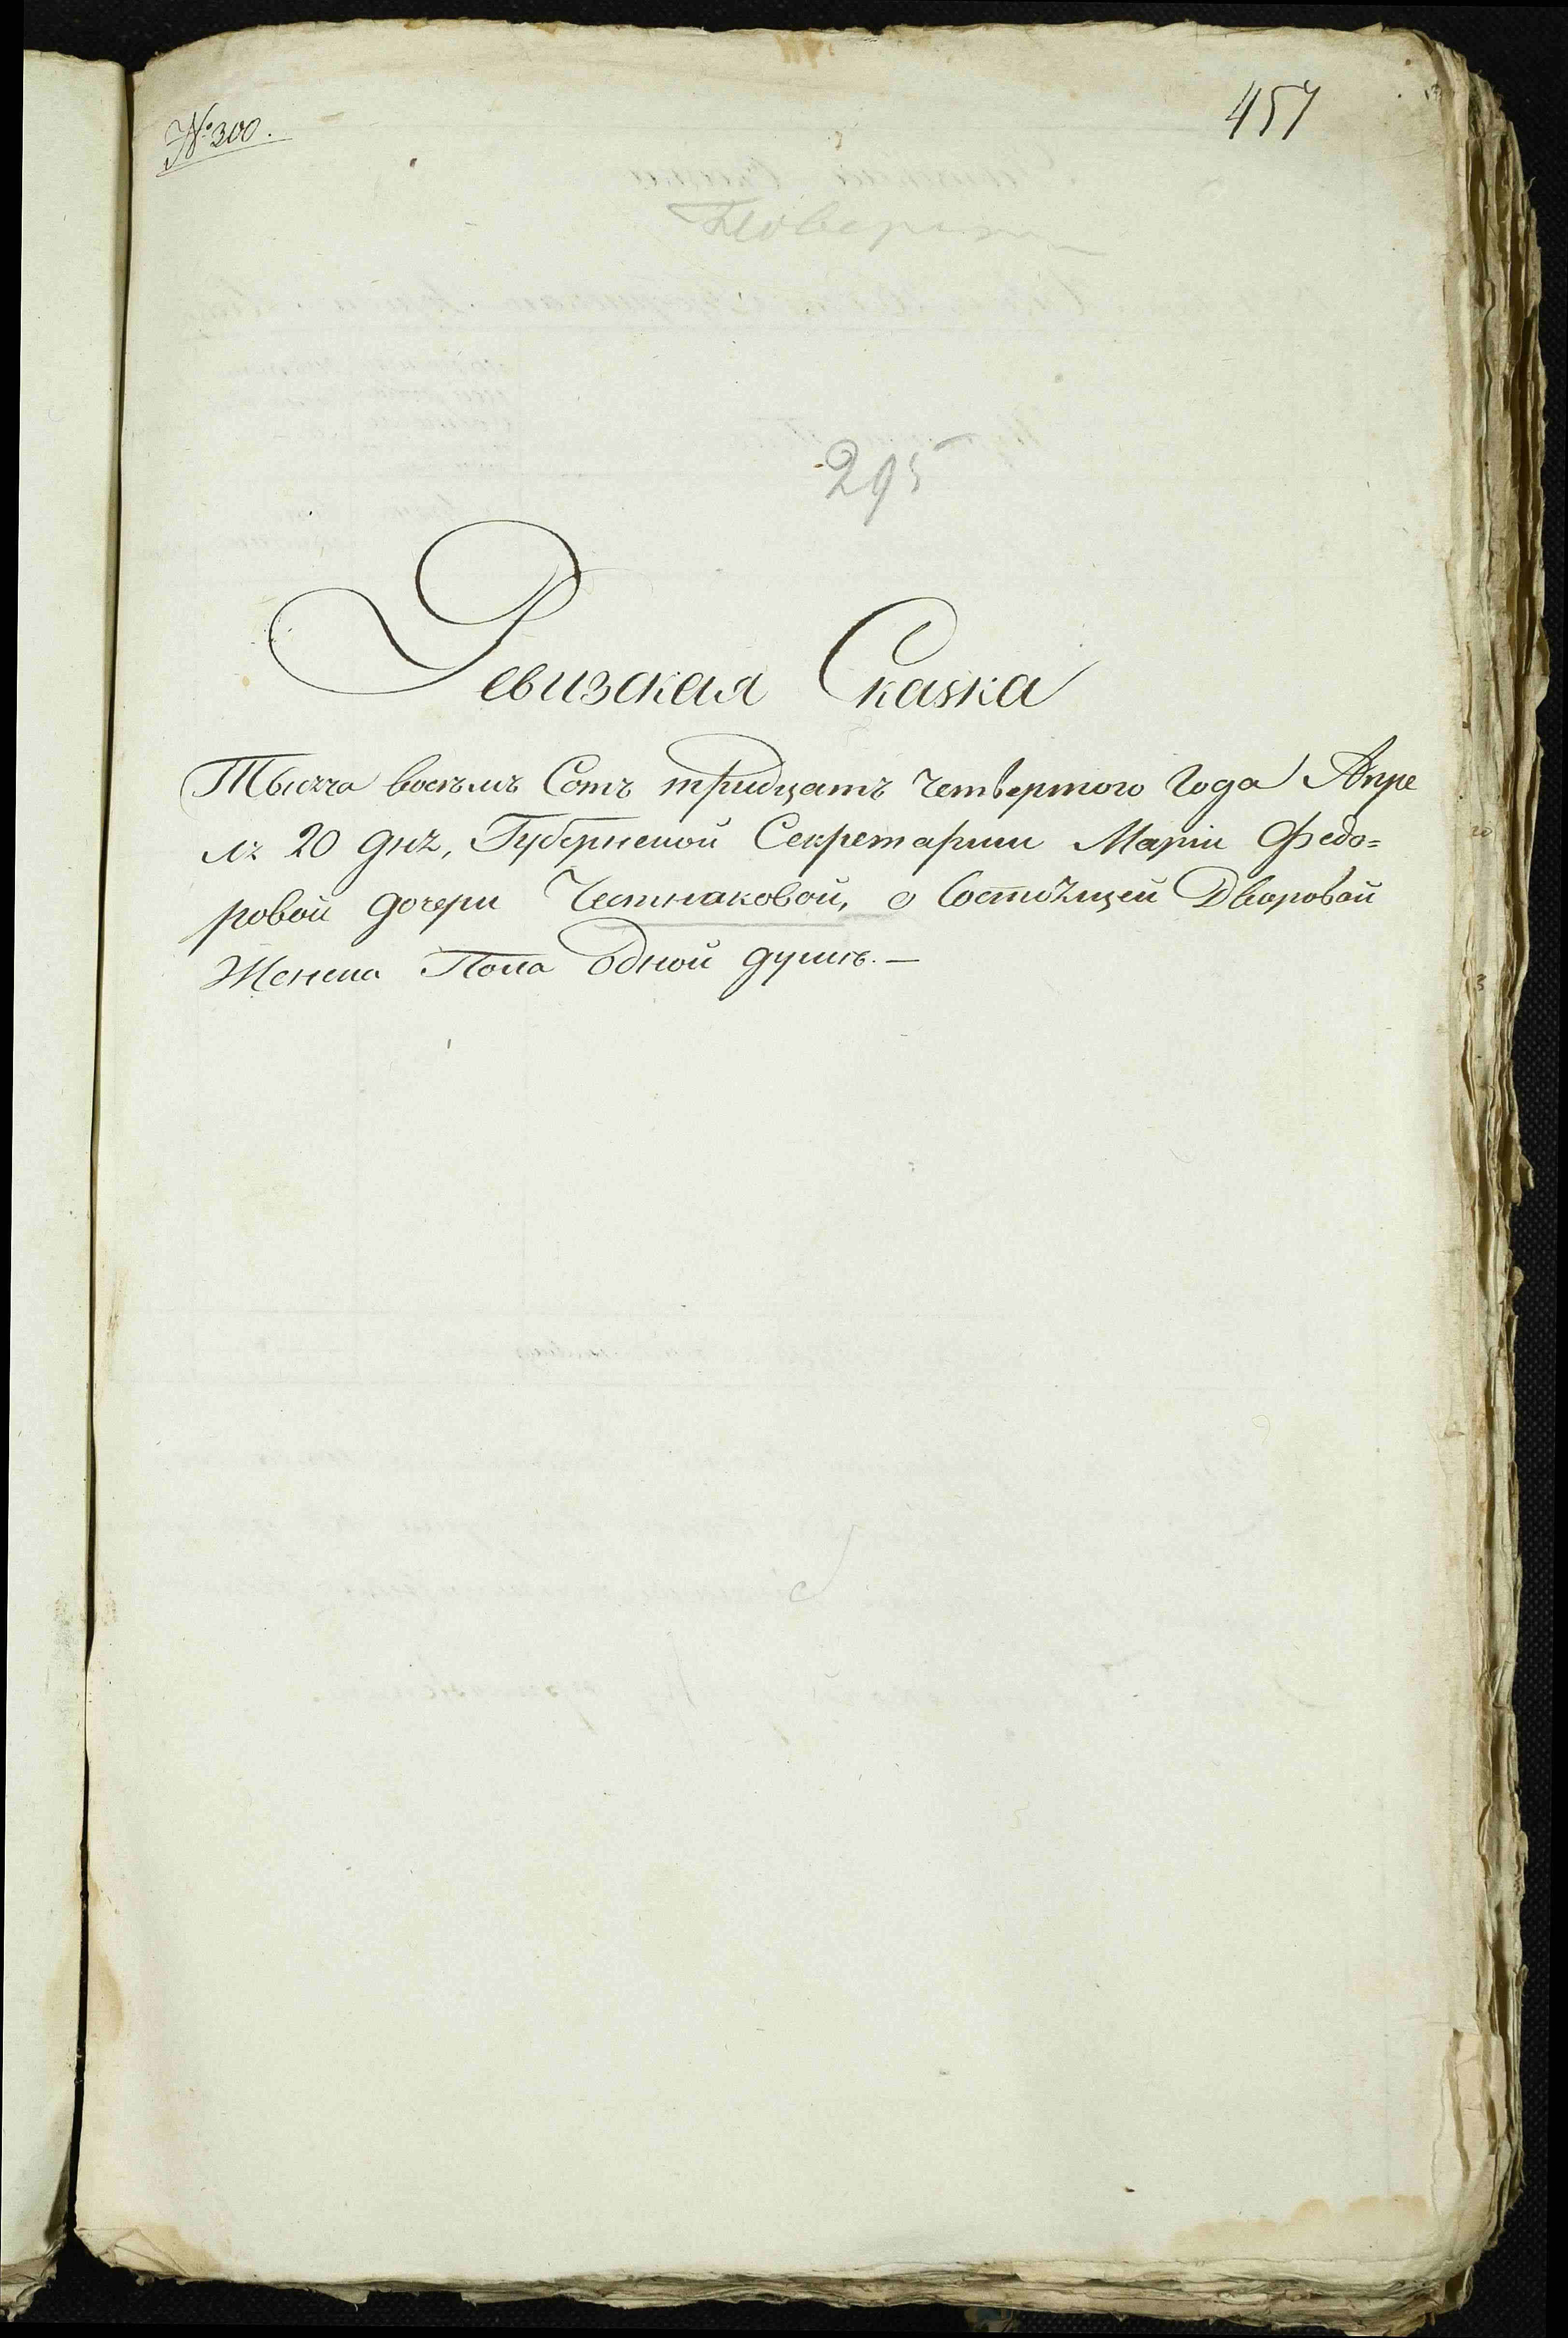 № 300.
457
295
Ревизская Сказка
Тысяча восемь Сотъ тридцать четвертого Года Апре
ля 20 дня, Губернской Секретарши Маріи Федо=
ровой дочери Честнаковой, о Состоящей Дворовой
Женска Пола Одной душе.—